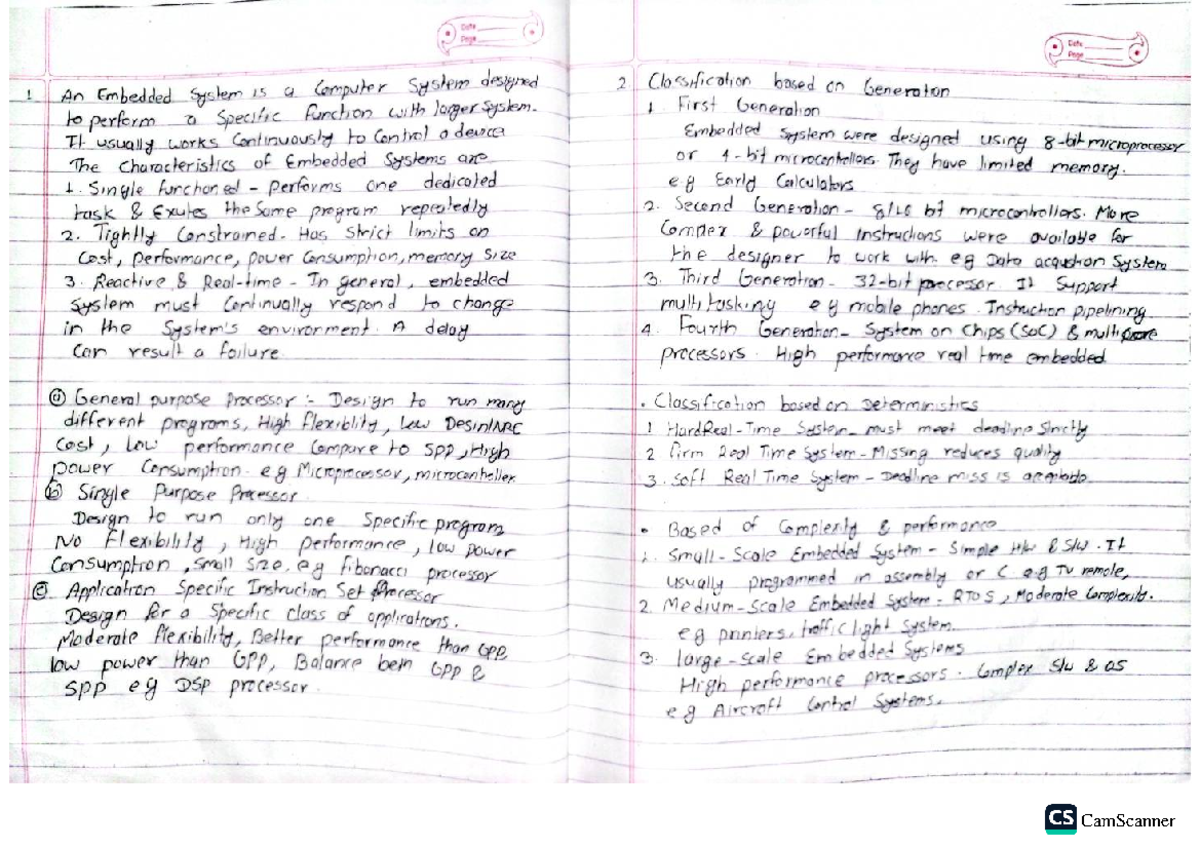 Date
Page
1 An Embedded System is a Computer System designed
to perform a Specific function with larger System.
It usually works Continuously to Control a device
The Characteristics of Embedded Systems are
1. Single functioned - performs one dedicated
task & Exutes the Same program repeatedly
2. Tightly Constrained. Has strict limits on
Cost, performance, power Consumption, memory size
3. Reactive & Real-time - In general, embedded
System must Continually respond to change
in the System's environment. A delay
Can result a failure
ⓐ General purpose Processor :- Design to run many
different programs, High flexiblity, Low Desin/NRE
Cost, Low performance Compare to SPP, High
power Consumption. e.g Microprocessor, microcontroller
ⓑ Single Purpose Processor
Design to run only one Specific program
No Flexibility, High performance, low power
Consumption, Small size. e.g fibonacci processor
ⓒ Application Specific Instruction Set Processor
Design for a Specific class of applications.
Moderate flexibility, Better performance than GPP
low power than GPP, Balance betn GPP &
SPP e g DSP processor.
Date
Page
2. Classification based on Generation
1. First Generation
Embedded System were designed using 8-bit microprocessor
or 4-bit microcontrollers. They have limited memory.
e.g Early Calculators
2. Second Generation - 8/16 bit microcontrollers. More
Complex & powerful Instructions were available for
the designer to work with. eg Data System
3. Third Generation - 32-bit processor. It Support
multitasking e g mobile phones. Instruction pipelining
4. Fourth Generation - System on Chips (SoC) & multicore
processors. High performance real time embedded
. Classification based on Deterministics
1 Hard Real-Time System - must meet deadline Strictly
2 Firm Real Time System - Missing reduces quality
3. Soft Real Time System - Deadline miss is
• Based of Complexity & performance
1. Small-Scale Embedded System - Simple H/W & S/W. It
usually programmed in assembly or C e.g TV remote,
2. Medium-Scale Embedded System - RTOS, Moderate Complexity.
e g printers, traffic light System.
3. large-scale Embedded Systems
High performance processors. Complex S/W & OS
e g Aircraft Control Systems.
CS CamScanner